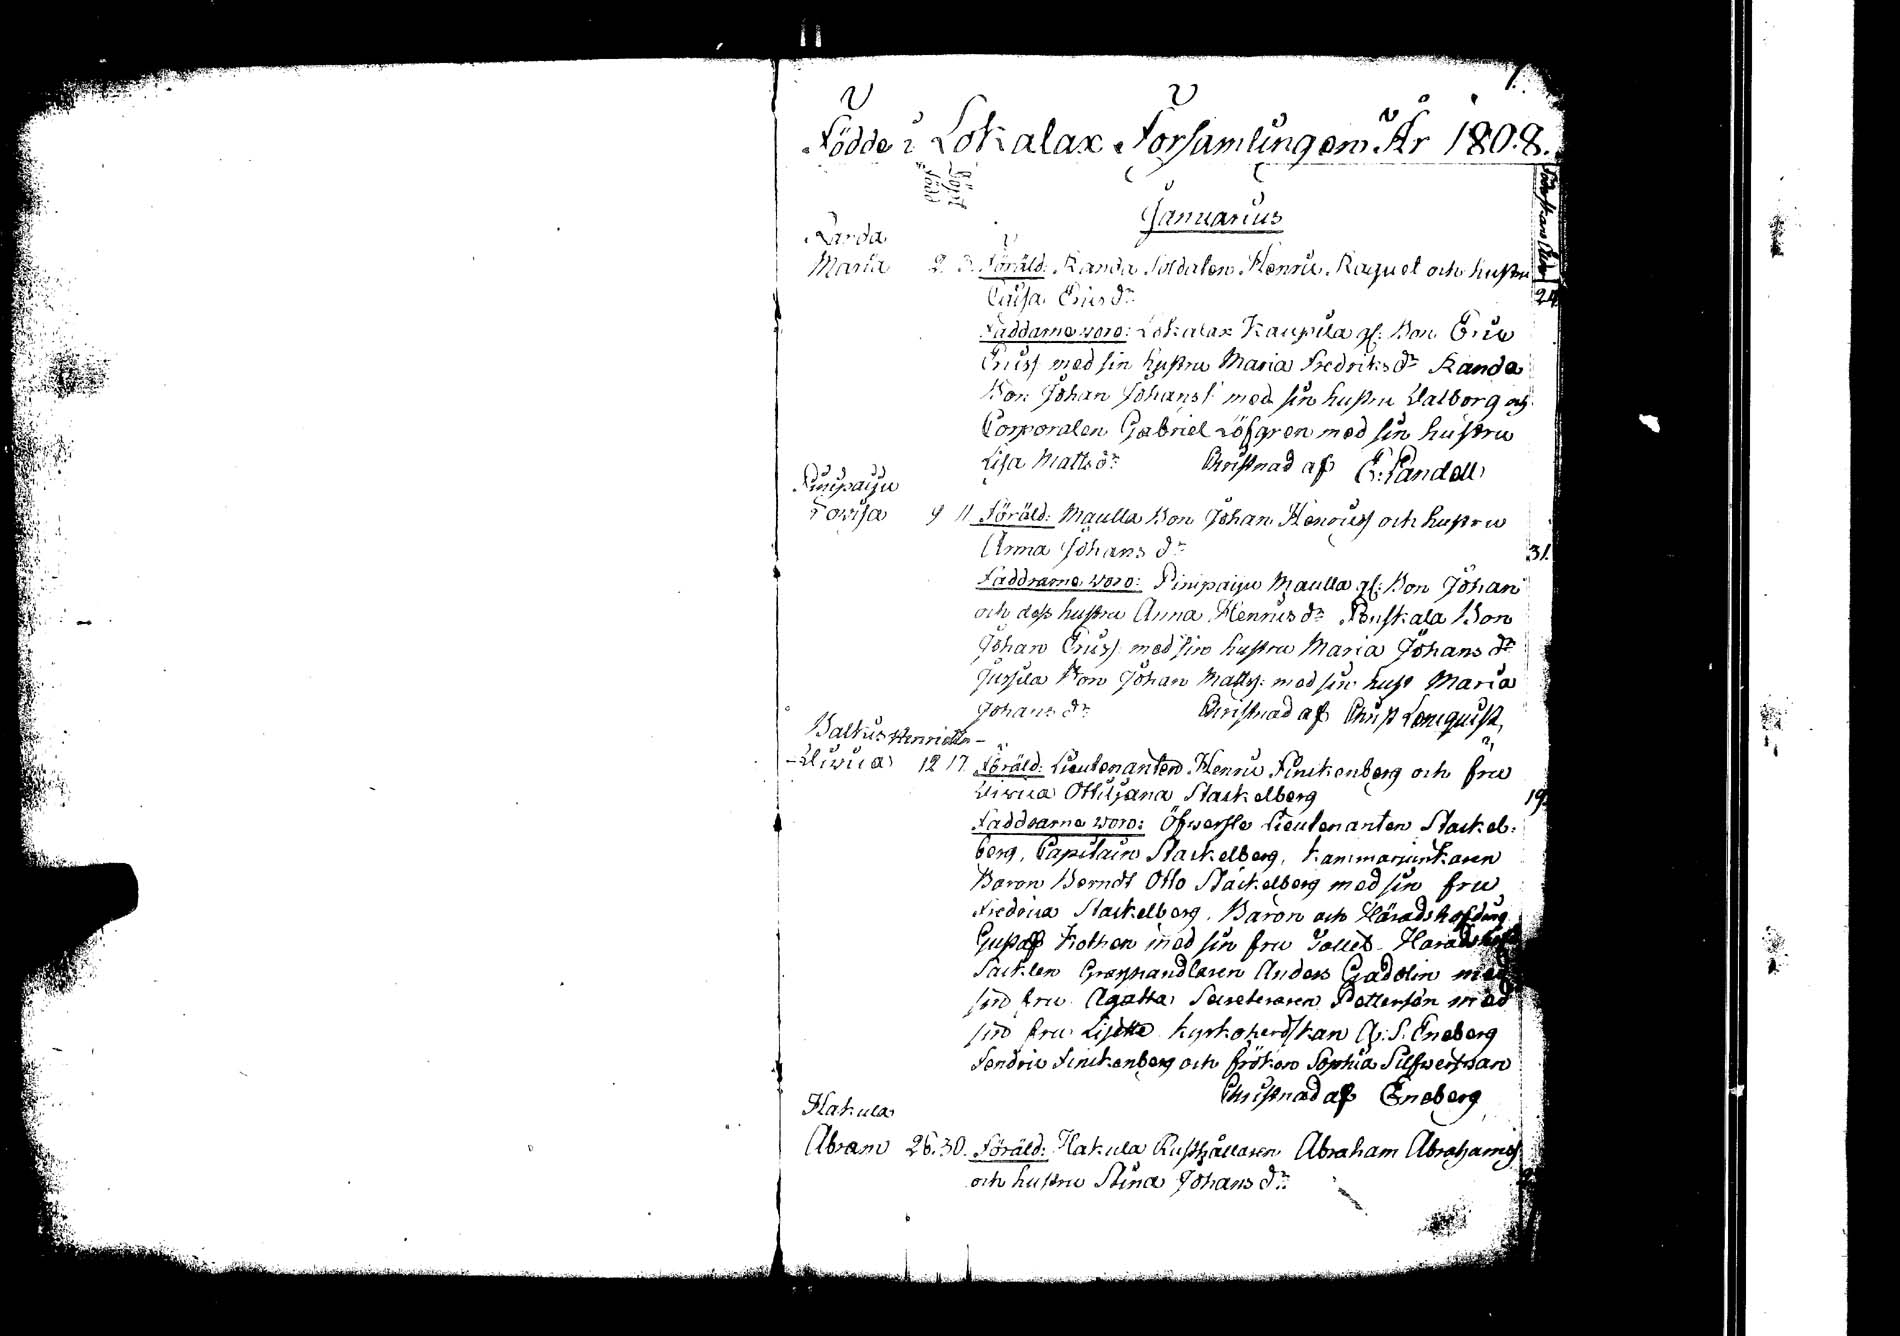 1.
Födde i Lokalax Församlingen År 1808.
Född
Döpt
Januarius
Randa
Maria 2. 3. Föräld: Randa Soldaten Henric Raquel och hustru
Caisa Ericsdr
24
Faddarne woro: Lokalax Kaupila gl: Bon. Eric
Ericss. med sin hustru Maria Fredriksdr Randa
Bon Johan Johanss. med sin hustru Walborg och
Corporalen Gabriel Löfgren med sin hustru
Lisa Mattsdr Christnad af E. Pandell
Pinipaiju
Lowisa 9 11 Föräld: Maulla Bon Johan Henricss och hustru
Anna Johansdr
31.
Faddrarne woro: Pinipaiju Maulla gl: Bon Johan
och dess hustru Anna Henricsdr Bon
Johan Ericss. med sin hustru Maria Johansdr
Jussila Bon Johan Matts: med sin hust Maria
Johansdr Christnad af Christ Lönnquist
Baltus Henrietta-
-Ulrica 12 17. Föräld: Lieutenanten Henric Finckenberg och fru
Ottiliana Stackelberg
19
Faddrarne woro: Öfwerste Lieutenanten Stackel-
berg, Capitain Stackelberg, Kammarjunkaren
Baron Berndt Otto Stackelberg med sin fru
Fredrica Stackelberg. Baron och Häradshöfding
Gustaf Kothen med sin fru
Sacklen Anders Gadolin med
sin fru Agatha Secreteraren Petterson med
sin fru Lisette Kyrkoherdskan A: S: Eneberg
Fendric Finckenberg och fröken Sophia Silfwerswan
Christnad af Eneberg
Hakula
Abram 26. 30. Föräld: Hakula Rusthållaren Abraham Abrahamss
och hustru Stina Johansdr